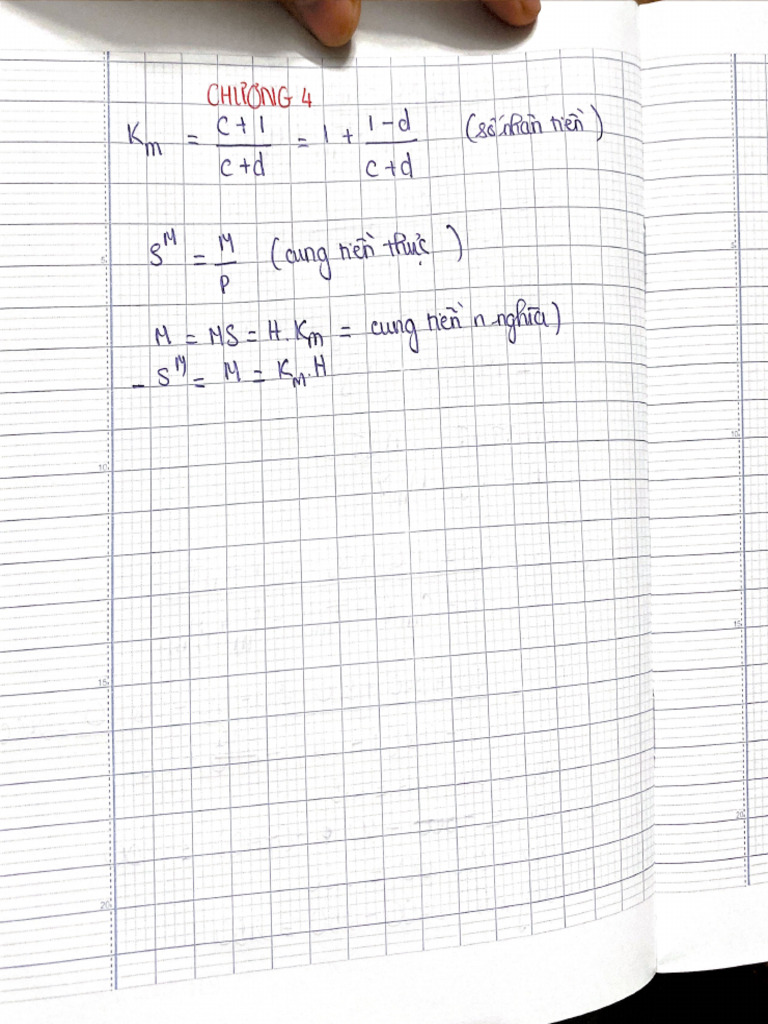 CHƯƠNG 4
Km = c+1/c+d = 1 + 1-d/c+d (số nhân tiền)
S^M = M/P (cung tiền thực)
M = MS = H.Km = cung tiền n.nghĩa)
- S^M = M = Km.H